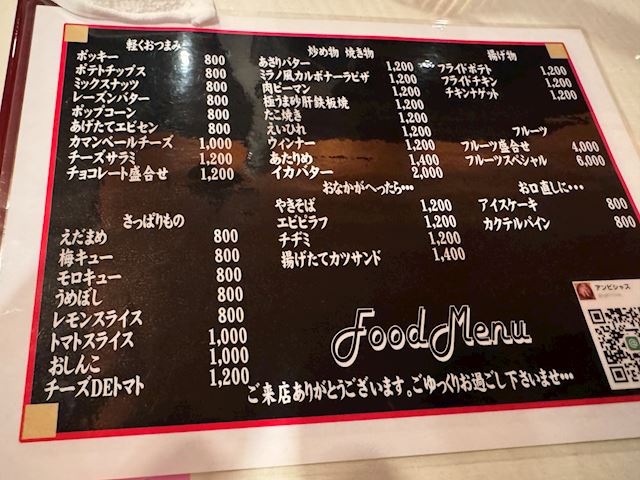 軽くおつまみ
ポッキー 800
ポテトチップス 800
ミックスナッツ 800
レーズンバター 800
ポップコーン 800
あげたてエビセン 800
カマンベールチーズ 1,000
チーズサラミ 1,200
チョコレート盛合せ 1,200
さっぱりもの
えだまめ 800
梅キュー 800
モロキュー 800
うめぼし 800
レモンスライス 800
トマトスライス 1,000
おしんこ 1,000
チーズDEトマト 1,200
炒め物 焼き物
あさりバター 1,200
ミラノ風カルボナーラピザ 1,200
肉ピーマン 1,200
極うま砂肝鉄板焼 1,200
たこ焼き 1,200
えいひれ 1,200
ウィンナー 1,200
あたりめ 1,400
イカバター 2,000
おなかがへったら…
やきそば 1,200
エビピラフ 1,200
チヂミ 1,200
揚げたてカツサンド 1,400
揚げ物
フライドポテト 1,200
フライドチキン 1,200
チキンナゲット 1,200
フルーツ
フルーツ盛合せ 4,000
フルーツスペシャル 6,000
お口直しに…
アイスケーキ 800
カクテルパイン 800
アンビシャス
Food Menu
ご来店ありがとうございます。ごゆっくりお過ごし下さいませ…